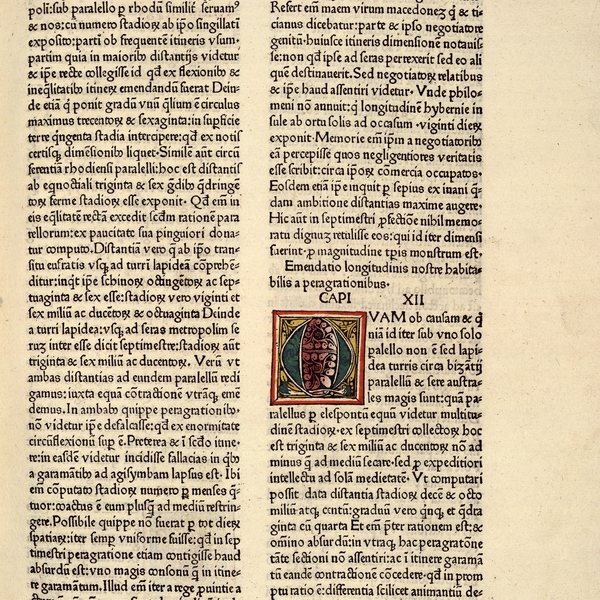 poli: sub paralello ꝑ rhodū similiť seruamꝰ
& nos: cū numero stadioꝝ ab ip̄o singillatī
exposito: partī ob frequentē itineris vsum.
partim quia in maiorib distantijs videtur
& ip̄e recte collegisse id q̄d ex flexionib &
ineq̄litatib itineꝝ emendandū fuerat Dein-
de etiā q̄ ponit gradū vnū q̄lium ē circulus
maximus trecentoꝝ & sexaginta: in supficie
terre q̄ngenta stadia intercipere: q̄d ex notis
certisq̨ dimēsionib liquet· Similē aūt circū
ferentiā rhodiensi paralelli: hoc est distantis
ab eqnoctiali triginta & sex g̃dib q̄dringē
toꝝ ferme stadioꝝ esse exponit· Q̄d em̄ in
eis eq̄litatē rectā excedit scdm̄ rationē para
rellorum: ex paucitate sua pinguiori dona-
tur computo. Distantiā vero q̄ ab ip̄o tran-
situ eufratis vsq̨ ad turrī lapideā cōprehē-
ditur: inqt ip̄e schinoꝝ octingētoꝝ ac sep-
tuaginta & sex esse: stadioꝝ vero viginti et
sex miliū ac ducētoꝝ & octuaginta Deinde
a turri lapidea: vsq̨ ad seras metropolim se
ruꝫ inter esse dicit septimestre: stadioꝝ aūt
triginta & sex miliū ac ducentoꝝ. Verū vt
ambas distantias ad eundem paralellū redi
gamus: iuxta equā cōtractionē vtrāq̨ eme
demus. In ambab quippe peragrationib·
nō videtur ip̄e defalcasse: q̄d ex enormitate
circūflexionū sup ē. Preterea & ī scdo itine-
re: in easdē videtur incidisse fallacias in q̄b
a garamātib ad agisymbam lapsus est· Ibi
em̄ cōputato stadioꝝ numero ꝑ menses q̄-
tuor: coactus ē eum plusq̄ ad mediū restrin-
gere. Possibile quippe nō fuerat ꝑ tot dieꝝ
spatiaꝝ: iter semp vniforme fuisse: q̄d in sep
timestri peragratione etiam contigisse haud
absurdū est: vno magis consonū q̄ in itine-
re garamātum. Illud em̄ iter a rege ꝓuintie a
Refert em̄ maem virum macedonē q̄ & ti-
cianus dicebatur: parte & ipso negotiatore
genitū· huiusce itineris dimensionē notauis-
se: non q̄d ipse ad seras perrexerit sed eo ali
quē destinauerit. Sed negotiatoꝝ relatibus
& ip̄e haud assentiri videtur. Vnde philo-
meni nō annuit: q̄ longitudinē hybernie in
sule ab ortu solis ad occasum · viginti dieꝝ
exponit· Memorie em̄ ip̄m a negotiatorib
eā percepisse quos negligentiores veritatis
esse scribit: circa ip̄oꝝ comercia occupatos.
Eosdem etiā ip̄e inquit ꝑ sepius ex inani q̄-
dam ambitione distantias maxime augere·
Hic aūt in septimestri ꝓfectiōe nihil memo-
ratu dignuꝫ retulisse eos: qui id iter dimensi
fuerint· ꝓ magnitudine tp̄is monstrum est·
Emendatio longitudinis nostre habita-
bilis a peragrationibus.
CAPI XII
QVAM ob causam & q̄
niā id iter sub vno solo
palello non ē sed lapi-
dea turris circa biꝫātij
paralellū & sere austra-
les magis sunt: quā pa-
ralellus ꝑ elespontū equū videtur multitu-
dinē stadioꝝ· ex septimestri collectoꝝ hoc
est triginta & sex miliū ac ducentoꝝ nō ad
minus q̄ ad mediū secare· sed ꝑ expeditiori
intellectu ad solā medietatē· Vt computari
possit data distantia stadioꝝ decē & octo
miliū atq̨ centū: graduū vero qnq̨ et q̄dra
ginta cū quarta Et em̄ p̄ter rationem est: &
omnino absurdū: in vtraq̨ hac peragratōne
tāte sectioni nō assentiri: ac ī itinere garamā
tū eandē contractionē cōcedere· q̄d in prom
ptu ratio ē: differentia scilicet animantiū de-